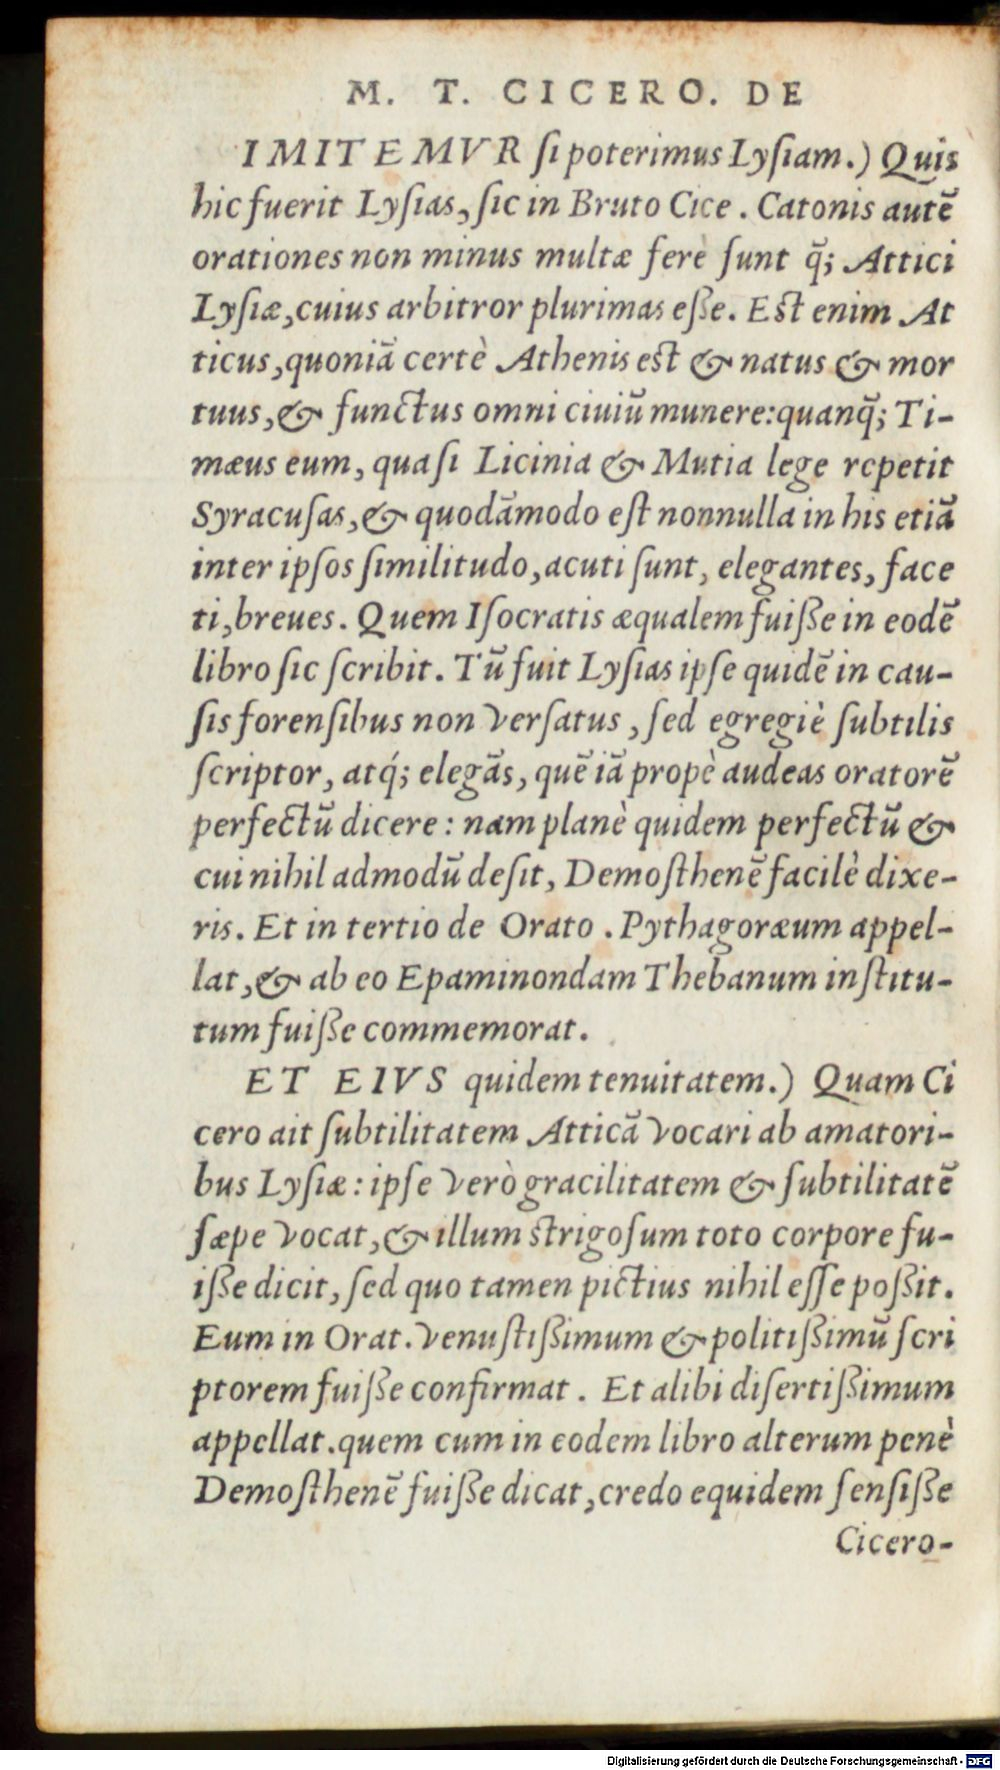 M. T. CICERO. DE
IMITEMVR ſi poterimus Lyſiam.) Quis
hic fuerit Lyſias, ſic in Bruto Cice. Catonis autē
orationes non minus multæ ferè ſunt q̃; Attici
Lyſiæ, cuius arbitror plurimas eſſe. Eſt enim At
ticus, quoniā certè Athenis eſt & natus & mor
tuus, & functus omni ciuiū munere: quanq̃; Ti-
mæus eum, quaſi Licinia & Mutia lege repetit
Syracuſas, & quodāmodo eſt nonnulla in his etiā
inter ipſos ſimilitudo, acuti ſunt, elegantes, face
ti, breues. Quem Iſocratis æqualem fuiſſe in eodē
libro ſic ſcribit. Tū fuit Lyſias ipſe quidē in cau-
ſis forenſibus non verſatus, ſed egregiè ſubtilis
ſcriptor, atq́; elegās, quē iā propè audeas oratorē
perfectū dicere: nam planè quidem perfectū &
cui nihil admodū deſit, Demoſthenē facilè dixe-
ris. Et in tertio de Orato. Pythagoræum appel-
lat, & ab eo Epaminondam Thebanum inſtitu-
tum fuiſſe commemorat.
ET EIVS quidem tenuitatem.) Quam Ci
cero ait ſubtilitatem Atticā vocari ab amatori-
bus Lyſiæ: ipſe verò gracilitatem & ſubtilitatē
ſæpe vocat, & illum ſtrigoſum toto corpore fu-
iſſe dicit, ſed quo tamen pictius nihil eſſe poſſit.
Eum in Orat. venuſtiſſimum & politiſſimū ſcri
ptorem fuiſſe confirmat. Et alibi diſertiſſimum
appellat. quem cum in eodem libro alterum penè
Demoſthenē fuiſſe dicat, credo equidem ſenſiſſe
Cicero-
Digitalisierung gefördert durch die Deutsche Forschungsgemeinschaft - DFG